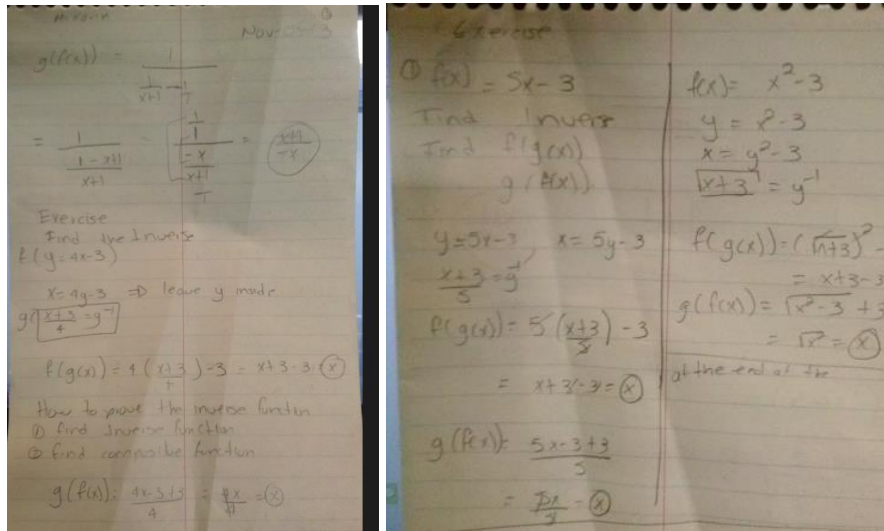 g(f(x)) = 1 / (1/(x+1) - 1)
= 1 / ((1-x+1)/(x+1)) = (1/1) / (-x/(x+1)) = x+1/-x
Exercise
Find the Inverse
f(y=4x-3)
x=4y-3 ⇒ leave y
x+3/4 = y⁻¹
f(g(x)) = 4(x+3/4)-3 = x+3-3=x
How to prove the inverse function
① find Inverse function
② find composite function
g(f(x)) = 4x-3+3/4 = 4x/4 = x
Exercise
① f(x) = 5x-3
Find Invers
Find f(g(x))
g(f(x))
y=5x-3, x=5y-3
x+3/5 = y⁻¹
f(g(x)) = 5(x+3/5)-3
= x+3-3= x
g(f(x)) = 5x-3+3/5
= 5x/5 = x
f(x) = x²-3
y = x²-3
x = y²-3
√x+3 = y⁻¹
f(g(x)) = (√x+3)² -
= x+3-3
g(f(x)) = √x²-3+3
= √x² = x
at the end of the